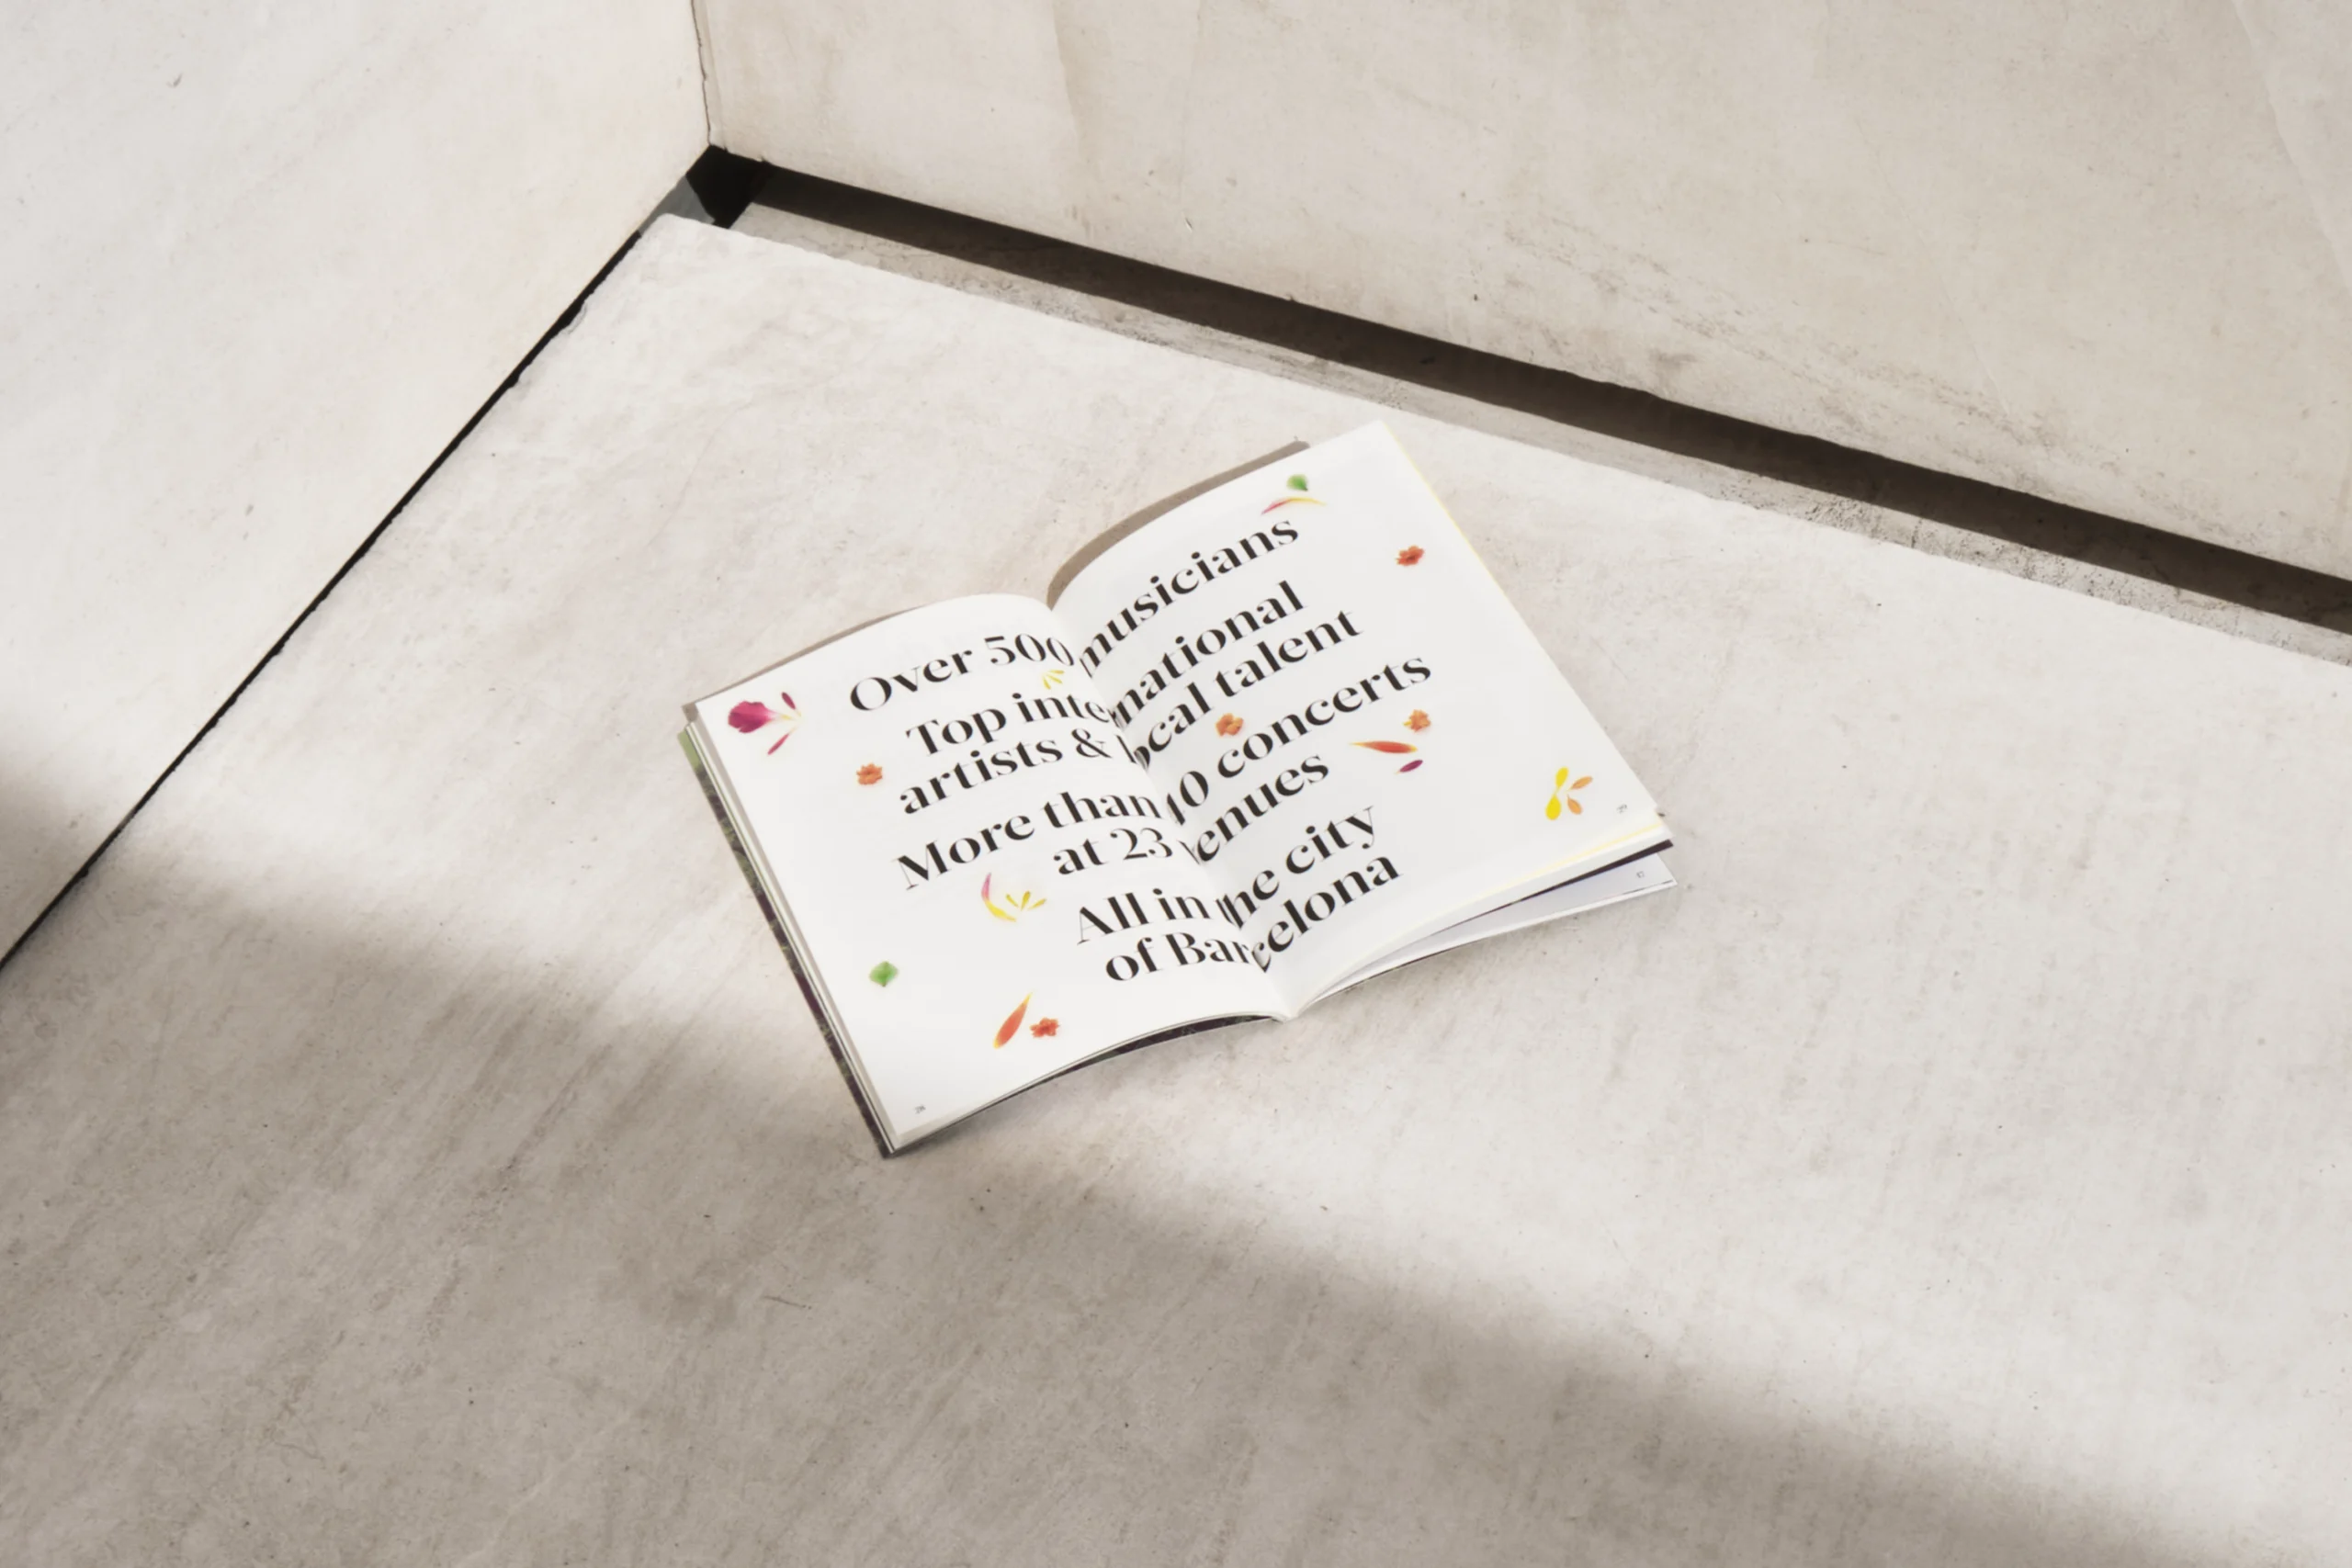 Over 500 musicians
Top international
artists & local talent
More than
10 concerts
at 23 venues
All in the city
of Barcelona
28
29
17